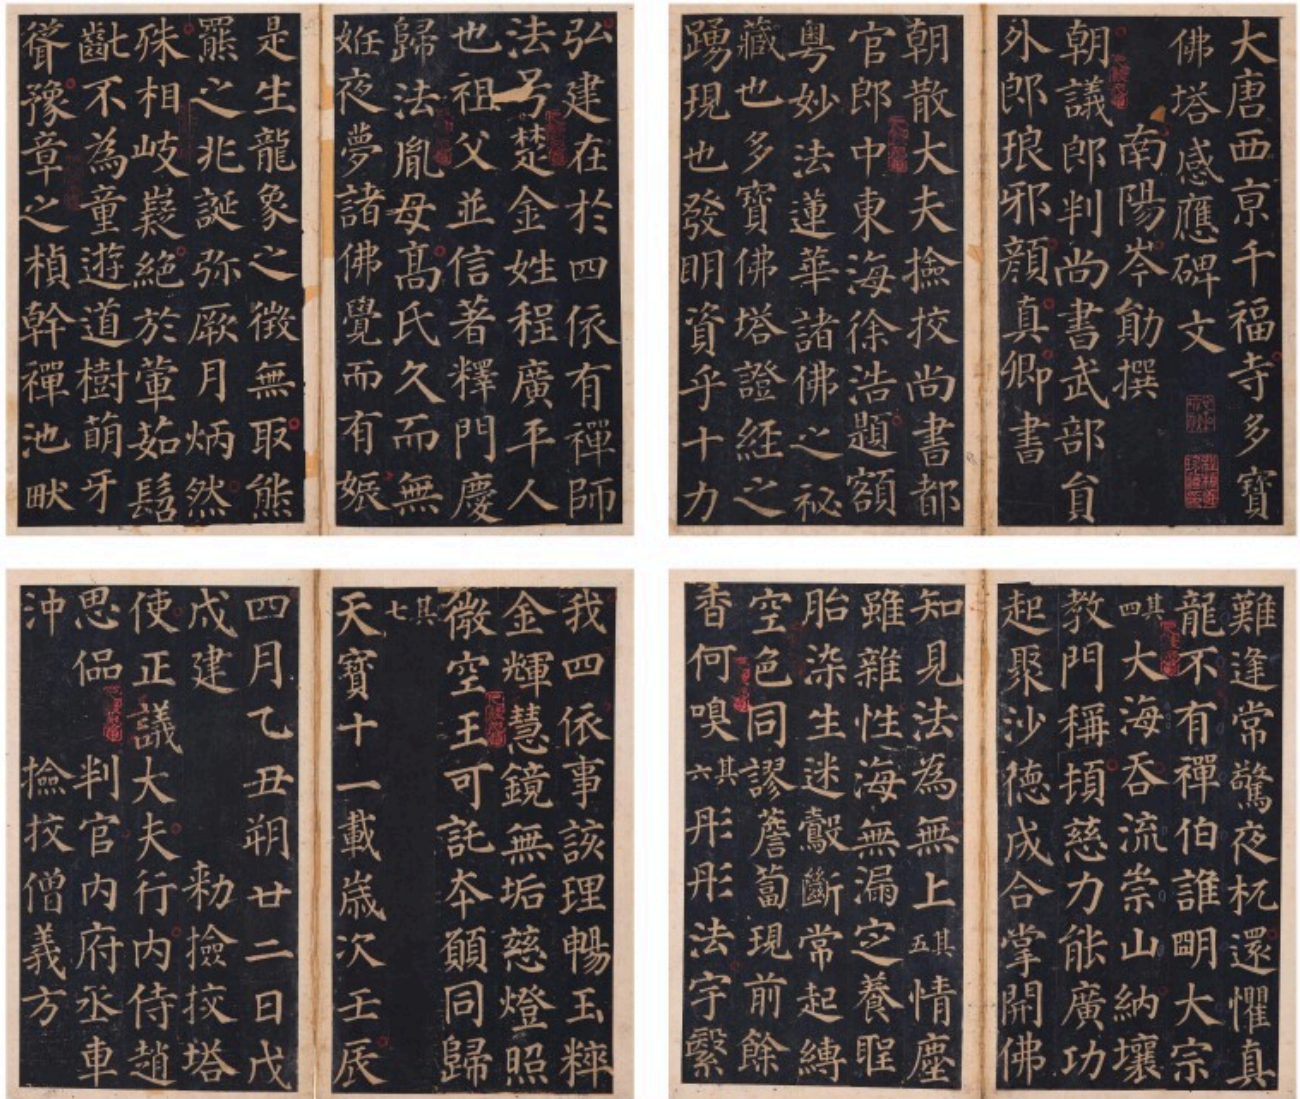 大唐西亰千福寺多寶
佛塔感應碑文
南陽岑勛撰
朝議郎判尚書武部貟
外郎琅邪顏真卿書
朝散大夫撿挍尚書都
官郎中東海徐浩題額
粵妙法蓮華諸佛之祕
藏也多寶佛塔證経之
踴現也發明資乎十力
弘建在於四依有禪師
法号楚金姓程廣平人
也祖父並信著釋門慶
歸法胤母髙氏久而無
姙夜夢諸佛覺而有娠
是生龍象之徵無取熊
羆之兆誕弥厥月炳然
殊相岐嶷絕於葷茹髫
齔不為童遊道樹萌牙
聳豫章之楨幹禪池畎
難逢常驚夜枕還懼真
龍不有禪伯誰明大宗
其四大海吞流崇山納壤
教門稱頓慈力能廣功
起聚沙德成合掌開佛
知見法為無上其五情塵
雖雜性海無漏定養聖
胎染生迷鷇斷常起縛
空色同謬薝蔔現前餘
香何嗅其六彤彤法宇繄
我四依事該理暢玉粹
金輝慧鏡無垢慈燈照
微空王可託本願同歸
其七
天寶十一載歲次壬辰
四月乙丑朔廿二日戊
戌建 勑撿挍塔
使正議大夫行内侍趙
思偘判官内府丞車
沖 撿挍僧義方